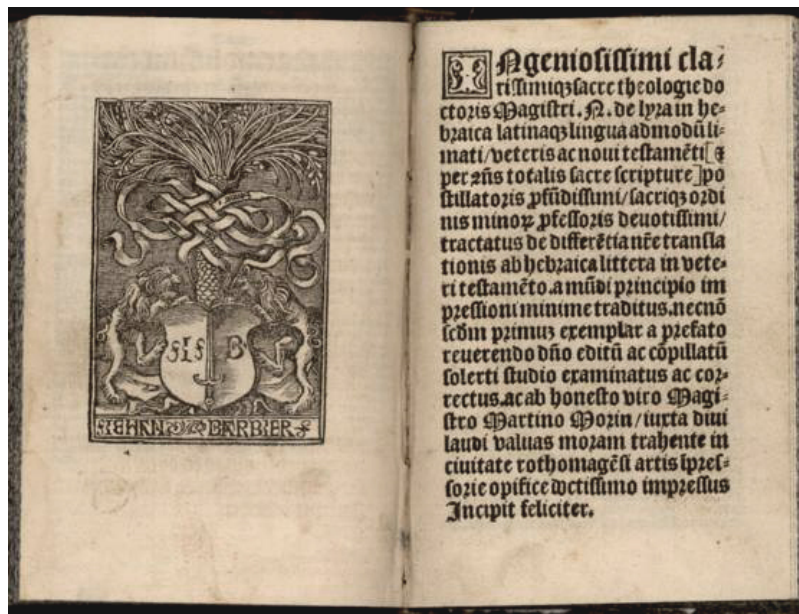 I B
IEHAN BARBIER
INgeniosissimi cla⸗
rissimiqꝫ sacre theologie do
ctoris Magistri. N. de lyra in he⸗
braica latinaqꝫ lingua admodū li⸗
mati/ veteris ac noui testamēti [⁊
per ꝯn̄s totalis sacre scripture] po
stillatoris ꝓfūdissimi/ sacriqꝫ ordi
nis minoꝝ ꝓfessoris deuotissimi/
tractatus de differētia nr̄e transla
tionis ab hebraica littera in vete⸗
ri testamēto. a mūdi principio im
pressioni minime traditus. necnō
scd̄m primuꝫ exemplar a prefato
reuerendo dn̄o editū ac cōpillatū
solerti studio examinatus ac cor⸗
rectus. ac ab honesto viro Magi⸗
stro Martino Morin/ iuxta diui
laudi valuas moram trahente in
ciuitate rothomagēsi artis īpres⸗
sorie opifice doctissimo impressus
Incipit feliciter.